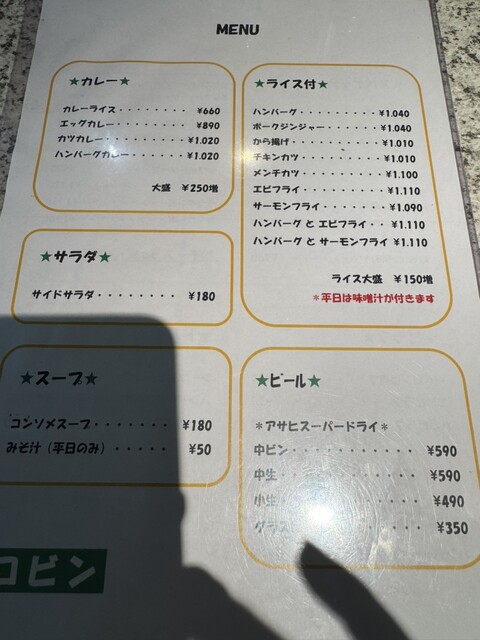 MENU
★カレー★
カレーライス・・・・・・・・ ¥660
エッグカレー・・・・・・・・ ¥890
カツカレー・・・・・・・・・¥1.020
ハンバーグカレー・・・・・・¥1.020
大盛 ¥250増
★サラダ★
サイドサラダ・・・・・・・・ ¥180
★スープ★
コンソメスープ・・・・・・・ ¥180
みそ汁（平日のみ）・・・・・・ ¥50
コビン
★ライス付★
ハンバーグ・・・・・・・・・¥1.040
ポークジンジャー・・・・・・¥1.040
から揚げ・・・・・・・・・・¥1.010
チキンカツ・・・・・・・・・¥1.010
メンチカツ・・・・・・・・・¥1.100
エビフライ・・・・・・・・・¥1.110
サーモンフライ・・・・・・・¥1.090
ハンバーグ と エビフライ・・¥1.110
ハンバーグ と サーモンフライ ¥1.110
ライス大盛 ¥150増
＊平日は味噌汁が付きます
★ビール★
＊アサヒスーパードライ＊
中ビン・・・・・・・・・・・¥590
中生・・・・・・・・・・・・¥590
小生・・・・・・・・・・・・¥490
グラス・・・・・・・・・・・¥350